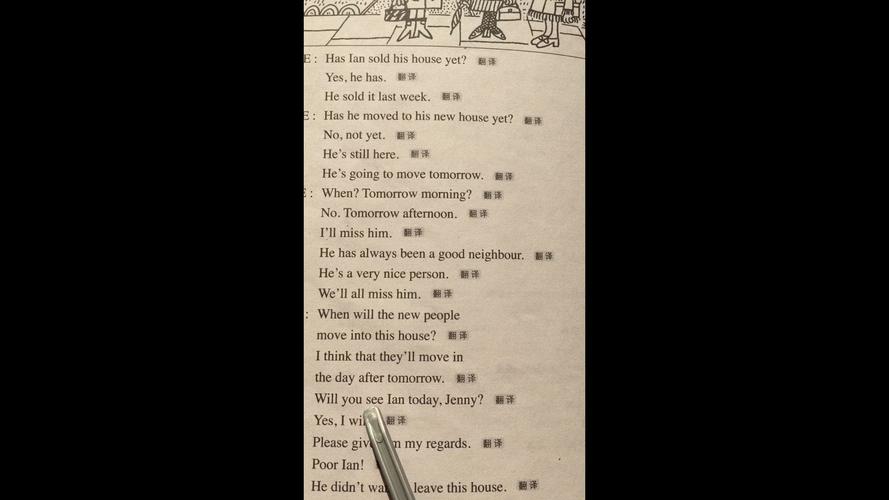 E: Has Ian sold his house yet? 翻译
Yes, he has. 翻译
He sold it last week. 翻译
E: Has he moved to his new house yet? 翻译
No, not yet. 翻译
He's still here. 翻译
He's going to move tomorrow. 翻译
: When? Tomorrow morning? 翻译
No. Tomorrow afternoon. 翻译
I'll miss him. 翻译
He has always been a good neighbour. 翻译
He's a very nice person. 翻译
We'll all miss him. 翻译
: When will the new people
move into this house? 翻译
I think that they'll move in
the day after tomorrow. 翻译
Will you see Ian today, Jenny? 翻译
Yes, I wi 翻译
Please giv m my regards. 翻译
Poor Ian!
He didn't wa leave this house. 翻译